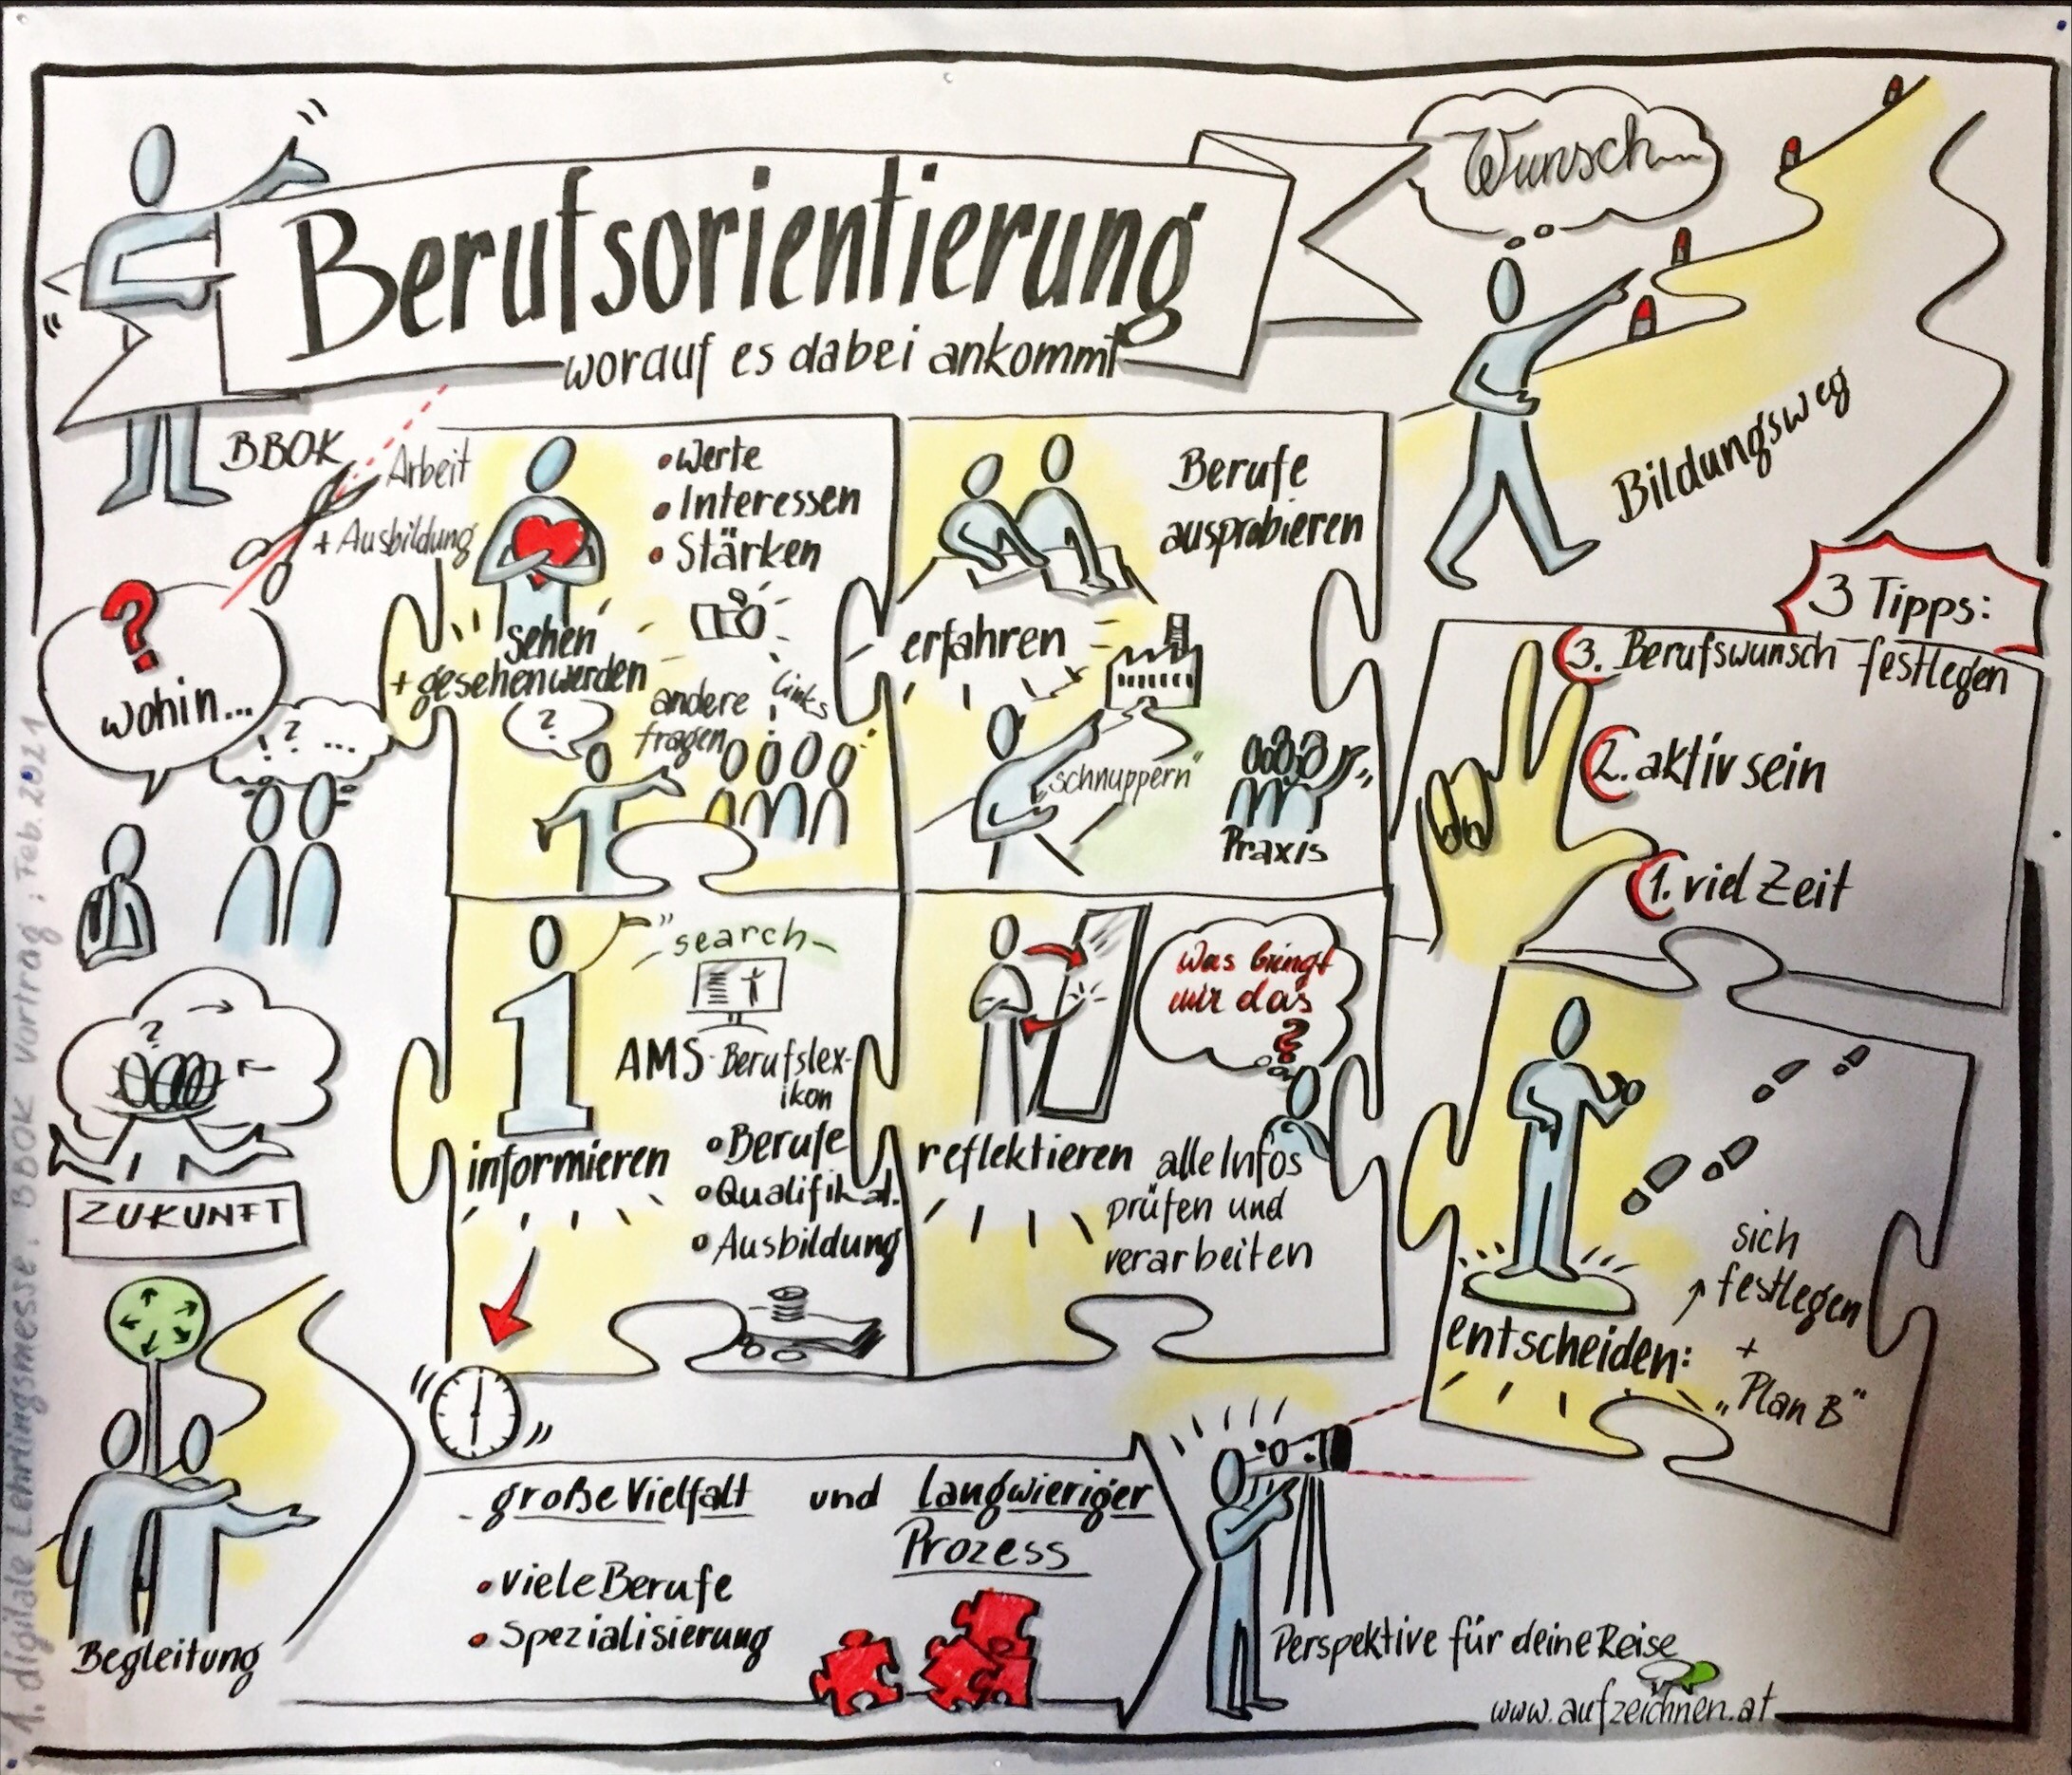 Berufsorientierung
worauf es dabei ankommt
Wunsch...
Bildungsweg
BBOK
Arbeit
+ Ausbildung
?
wohin...
! ? ...
• Werte
• Interessen
• Stärken
sehen
+ gesehen werden
?
andere
fragen
Links
Berufe
ausprobieren
erfahren
"schnuppern"
Praxis
3 Tipps:
3. Berufswunsch festlegen
2. aktiv sein
1. viel Zeit
?
ZUKUNFT
search
AMS-Berufslex-
ikon
informieren
• Berufe
• Qualifikat.
• Ausbildung
Was bringt
mir das
?
reflektieren
alle Infos
prüfen und
verarbeiten
entscheiden:
sich
festlegen
+
„Plan B"
Begleitung
- große Vielfalt und langwieriger
Prozess
• viele Berufe
• Spezialisierung
Perspektive für deine Reise
www.aufzeichnen.at
1. digitale Lehrlingsmesse: BBOK Vortrag: Feb. 2021